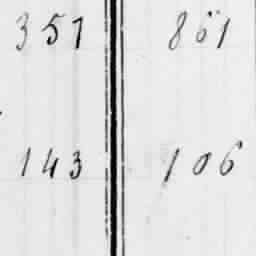 357 861
143 106